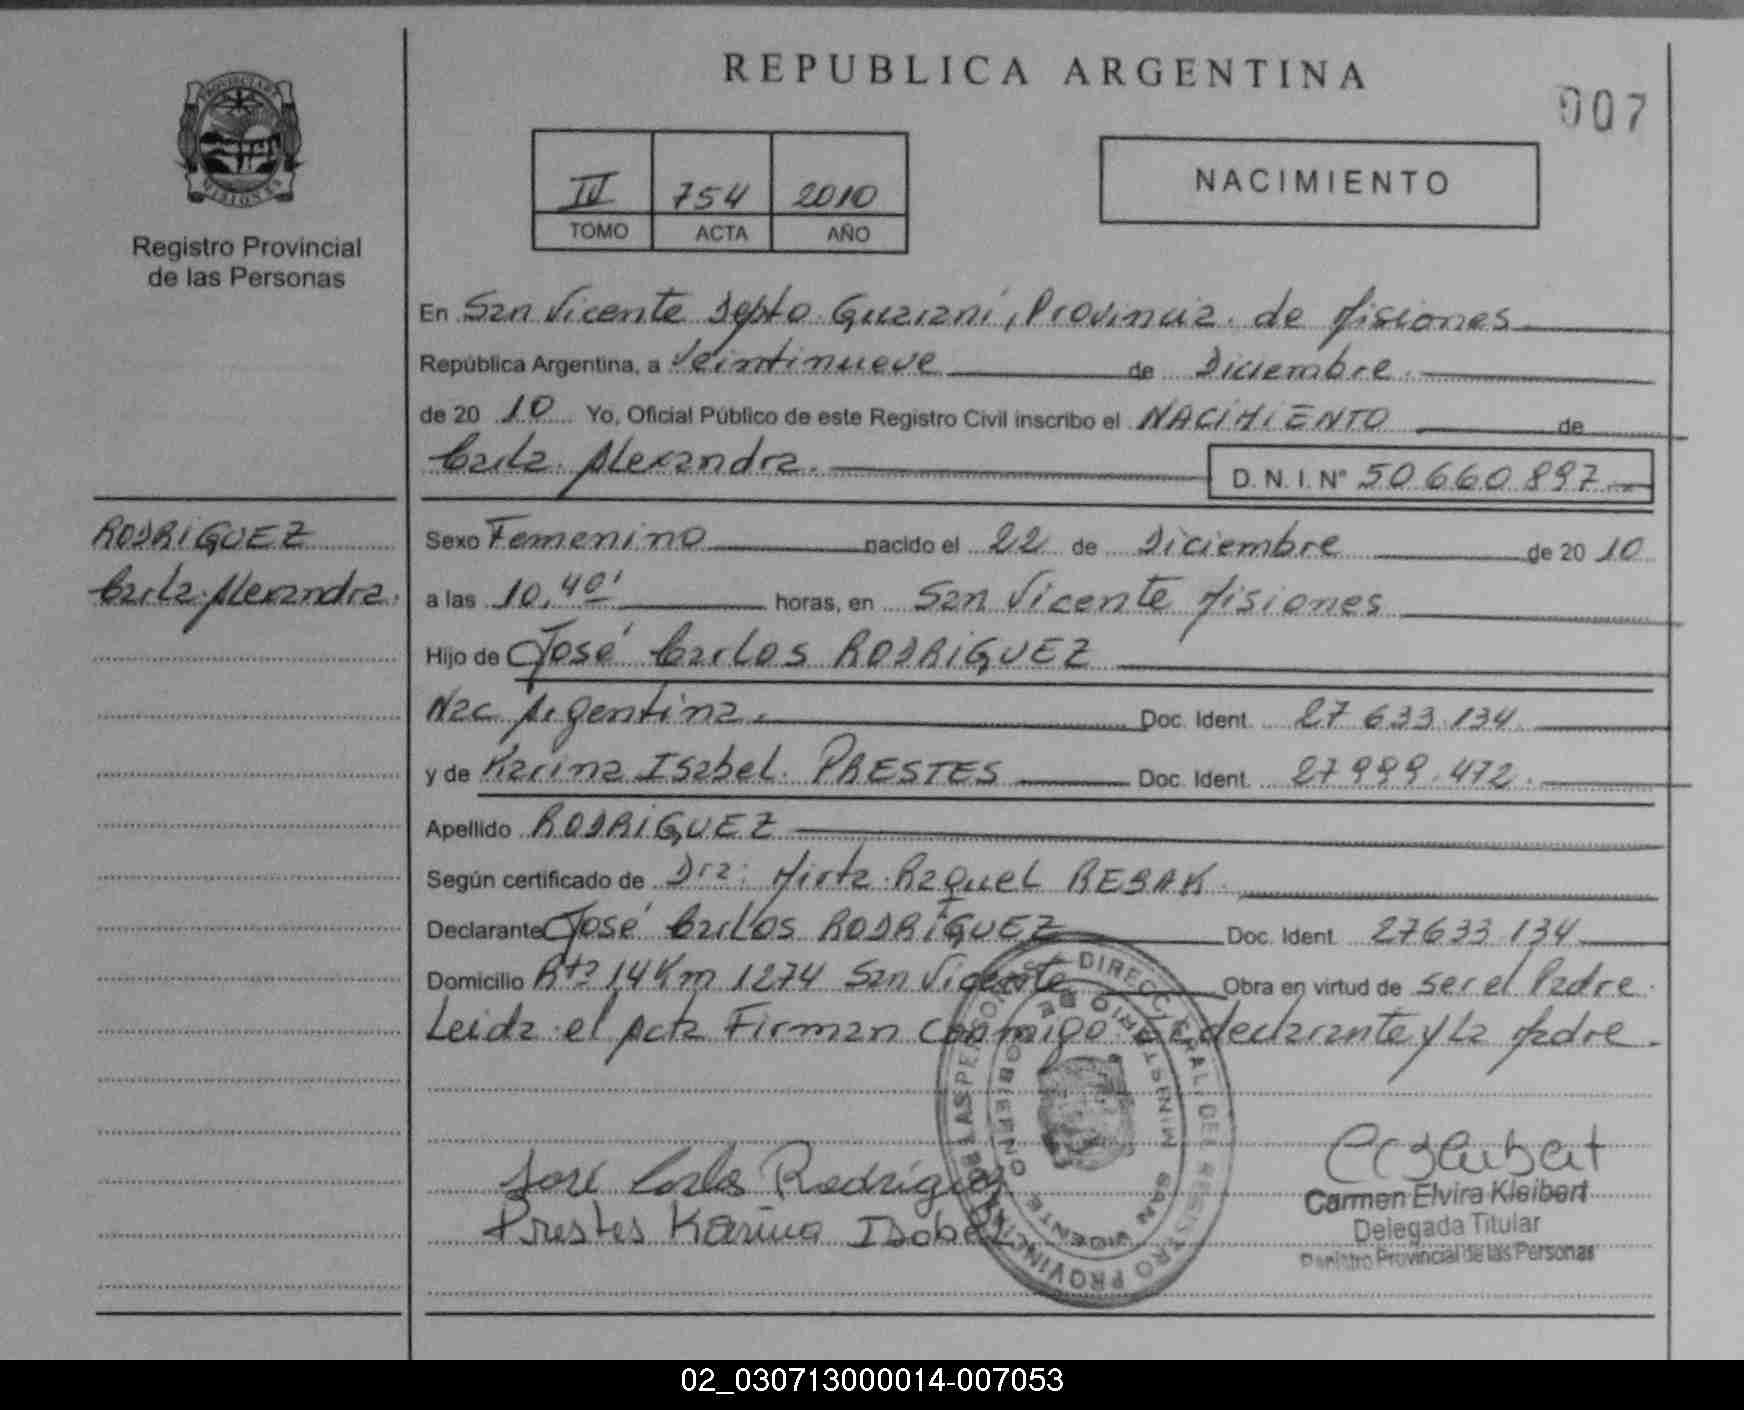 REPUBLICA ARGENTINA
007
Registro Provincial
de las Personas
IV 754 2010
TOMO ACTA AÑO
NACIMIENTO
En San Vicente Depto Guaraní, Provincia de Misiones
República Argentina, a Veintinueve de Diciembre
de 20 10 Yo, Oficial Público de este Registro Civil inscribo el NACIMIENTO de
Carla Alexandra. D. N. I. N° 50.660.897
RODRIGUEZ
Carla Alexandra.
Sexo Femenino nacido el 22 de Diciembre de 20 10
a las 10,40' horas, en San Vicente Misiones
Hijo de José Carlos RODRIGUEZ
Nac Argentina. Doc. Ident. 27 633.134
y de Karina Isabel PRESTES Doc. Ident. 27999.472.
Apellido RODRIGUEZ
Según certificado de Dra: Mirta Raquel REBAK
Declarante José Carlos RODRIGUEZ Doc. Ident. 27633 134
Domicilio Rta 14 Km 1274 San Vicente Obra en virtud de ser el Padre.
Leida el Acta Firman conmigo el declarante y La Madre.
José Carlos Rodriguez
Prestes Karina Isabel
DIRECC. GRAL. DEL REGISTRO PROVINCIAL DE LAS PERSONAS
MINISTERIO DE GOBIERNO
SAN VICENTE
Carmen Elvira Kleibert
Delegada Titular
Registro Provincial de las Personas
02_030713000014-007053